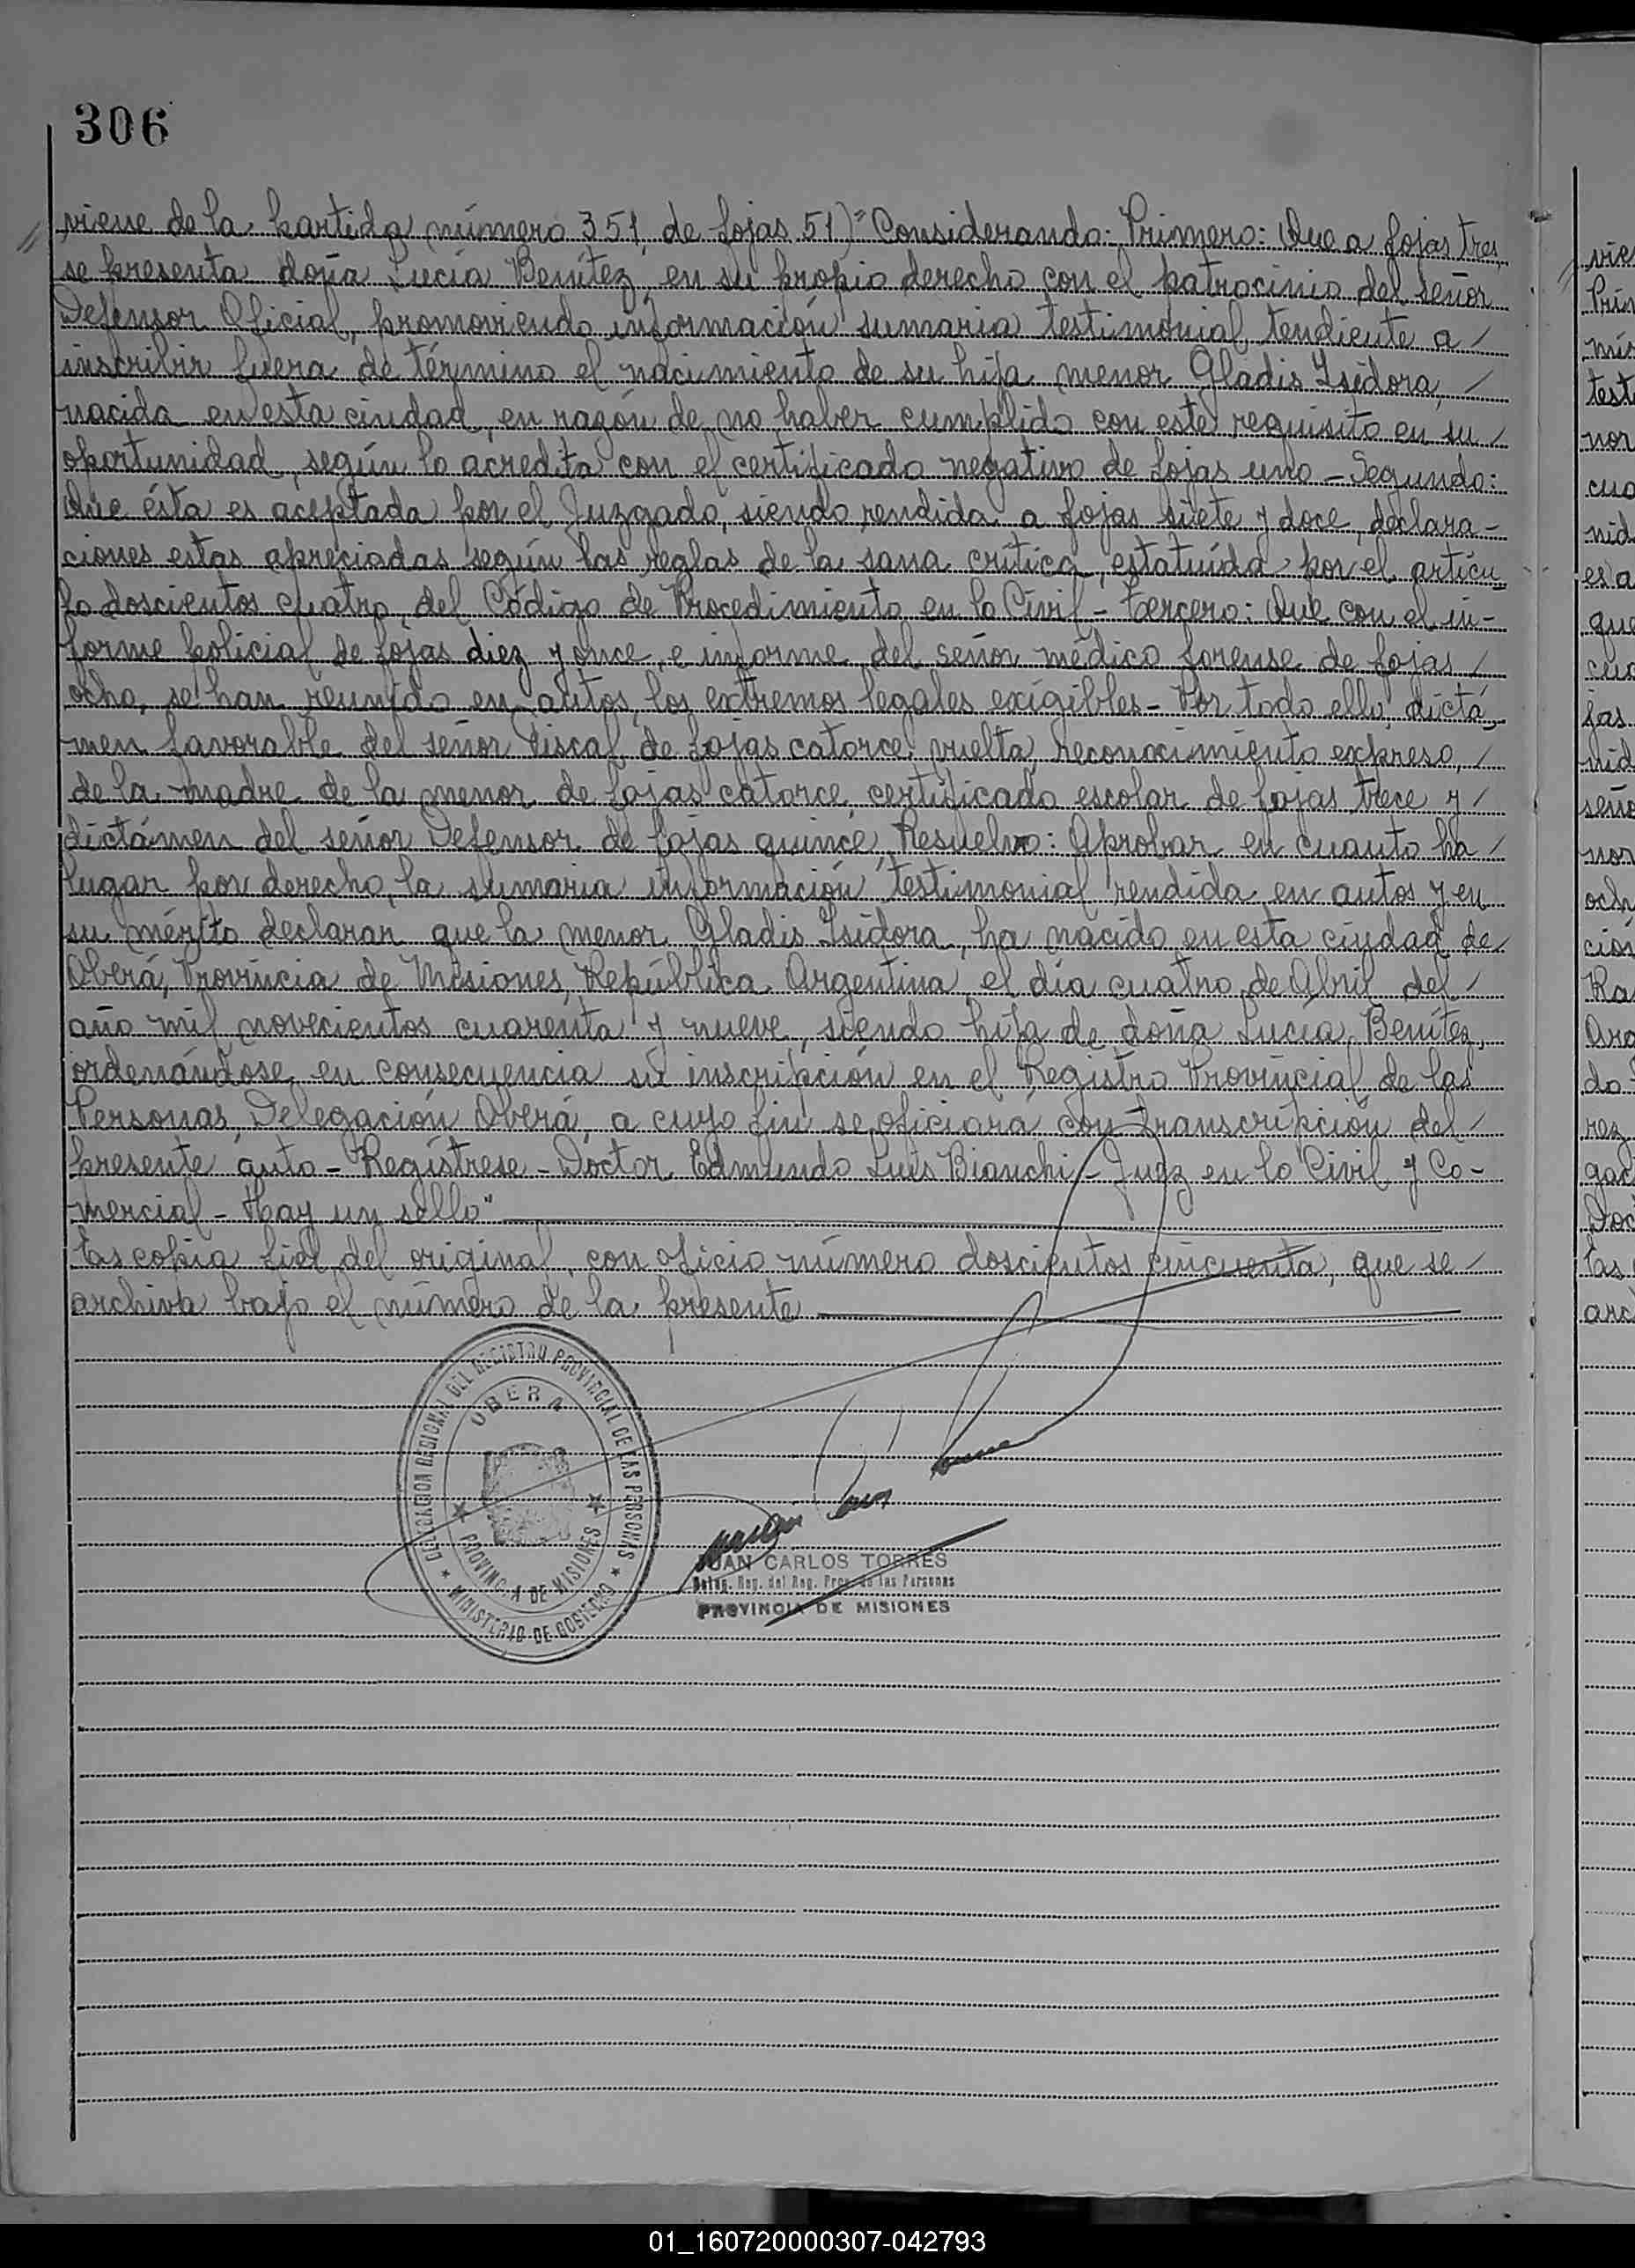 306
viene de la partida número 351 de fojas 51) "Considerando: Primero: Que a fojas tres,
se presenta doña Lucía Benítez, en su propio derecho con el patrocinio del señor
Defensor Oficial, promoviendo información sumaria testimonial tendiente a /
inscribir fuera de término el nacimiento de su hija menor Gladis Isidora, /
nacida en esta ciudad, en razón de no haber cumplido con este requisito en su /
oportunidad, según lo acredita con el certificado negativo de fojas uno - Segundo:
Que ésta es aceptada por el Juzgado, siendo rendida a fojas siete y doce, declara-
ciones estas apreciadas según las reglas de la sana crítica, estatuída por el artícu-
lo doscientos cuatro del Código de Procedimiento en lo Civil - Tercero: Que con el in-
forme policial de fojas diez y once, e informe del señor médico forense de fojas /
ocho, se han reunido en autos los extremos legales exigibles - Por todo ello, dictá-
men favorable del señor Fiscal de fojas catorce vuelta, reconocimiento expreso, /
de la madre de la menor de fojas catorce, certificado escolar de fojas trece y /
dictámen del señor Defensor de fojas quince, Resuelvo: Aprobar en cuanto ha /
lugar por derecho, la sumaria información testimonial rendida en autos y en
su mérito declarar que la menor Gladis Isidora, ha nacido en esta ciudad de /
Oberá, Provincia de Misiones, República Argentina, el día cuatro de Abril del /
año mil novecientos cuarenta y nueve, siendo hija de doña Lucía Benítez,
ordenándose en consecuencia su inscripción en el Registro Provincial de las
Personas, Delegación Oberá, a cuyo fin se oficiará con transcripción del /
presente auto - Regístrese - Doctor Edmundo Luis Bianchi - Juez en lo Civil y Co-
mercial - Hay un sello"
Es copia fiel del original, con oficio número doscientos cincuenta, que se /
archiva bajo el número de la presente
DELEGACION REGIONAL DEL REGISTRO PROVINCIAL DE LAS PERSONAS
OBERA
PROVINCIA DE MISIONES
MINISTERIO DE GOBIERNO
JUAN CARLOS TORRES
Deleg. Reg. del Reg. Prov. de las Personas
PROVINCIA DE MISIONES
01_160720000307-042793